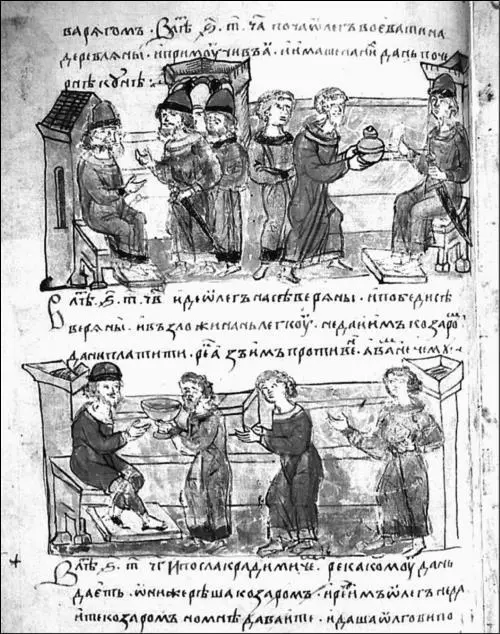 варѧгомъ · Влѣⷮ · ҂ѕ · т · ча почаѡлегъ воеватина
деревлѧны · ипримоучивъа · ина нн дань поче
рнѣ кунѣ :
Влѣⷮ · ҂ѕ · т · чв идеѡлегъ насѣверѧны · ипобедисѣ
верѧны · ивъзложи нань легкоу · недаимъ козаро
данн платити · рекъ азъ имъ противенъ · авамъ нечему :
Влѣⷮ · ҂ѕ · т · чг Ипосла крадимиче · река комоу дань
даеть · ѡниже рѣша козаромъ · ирече имъ ѡлегъ неда
ите козаромъ номнѣ даваите · идаша ѡлгови по